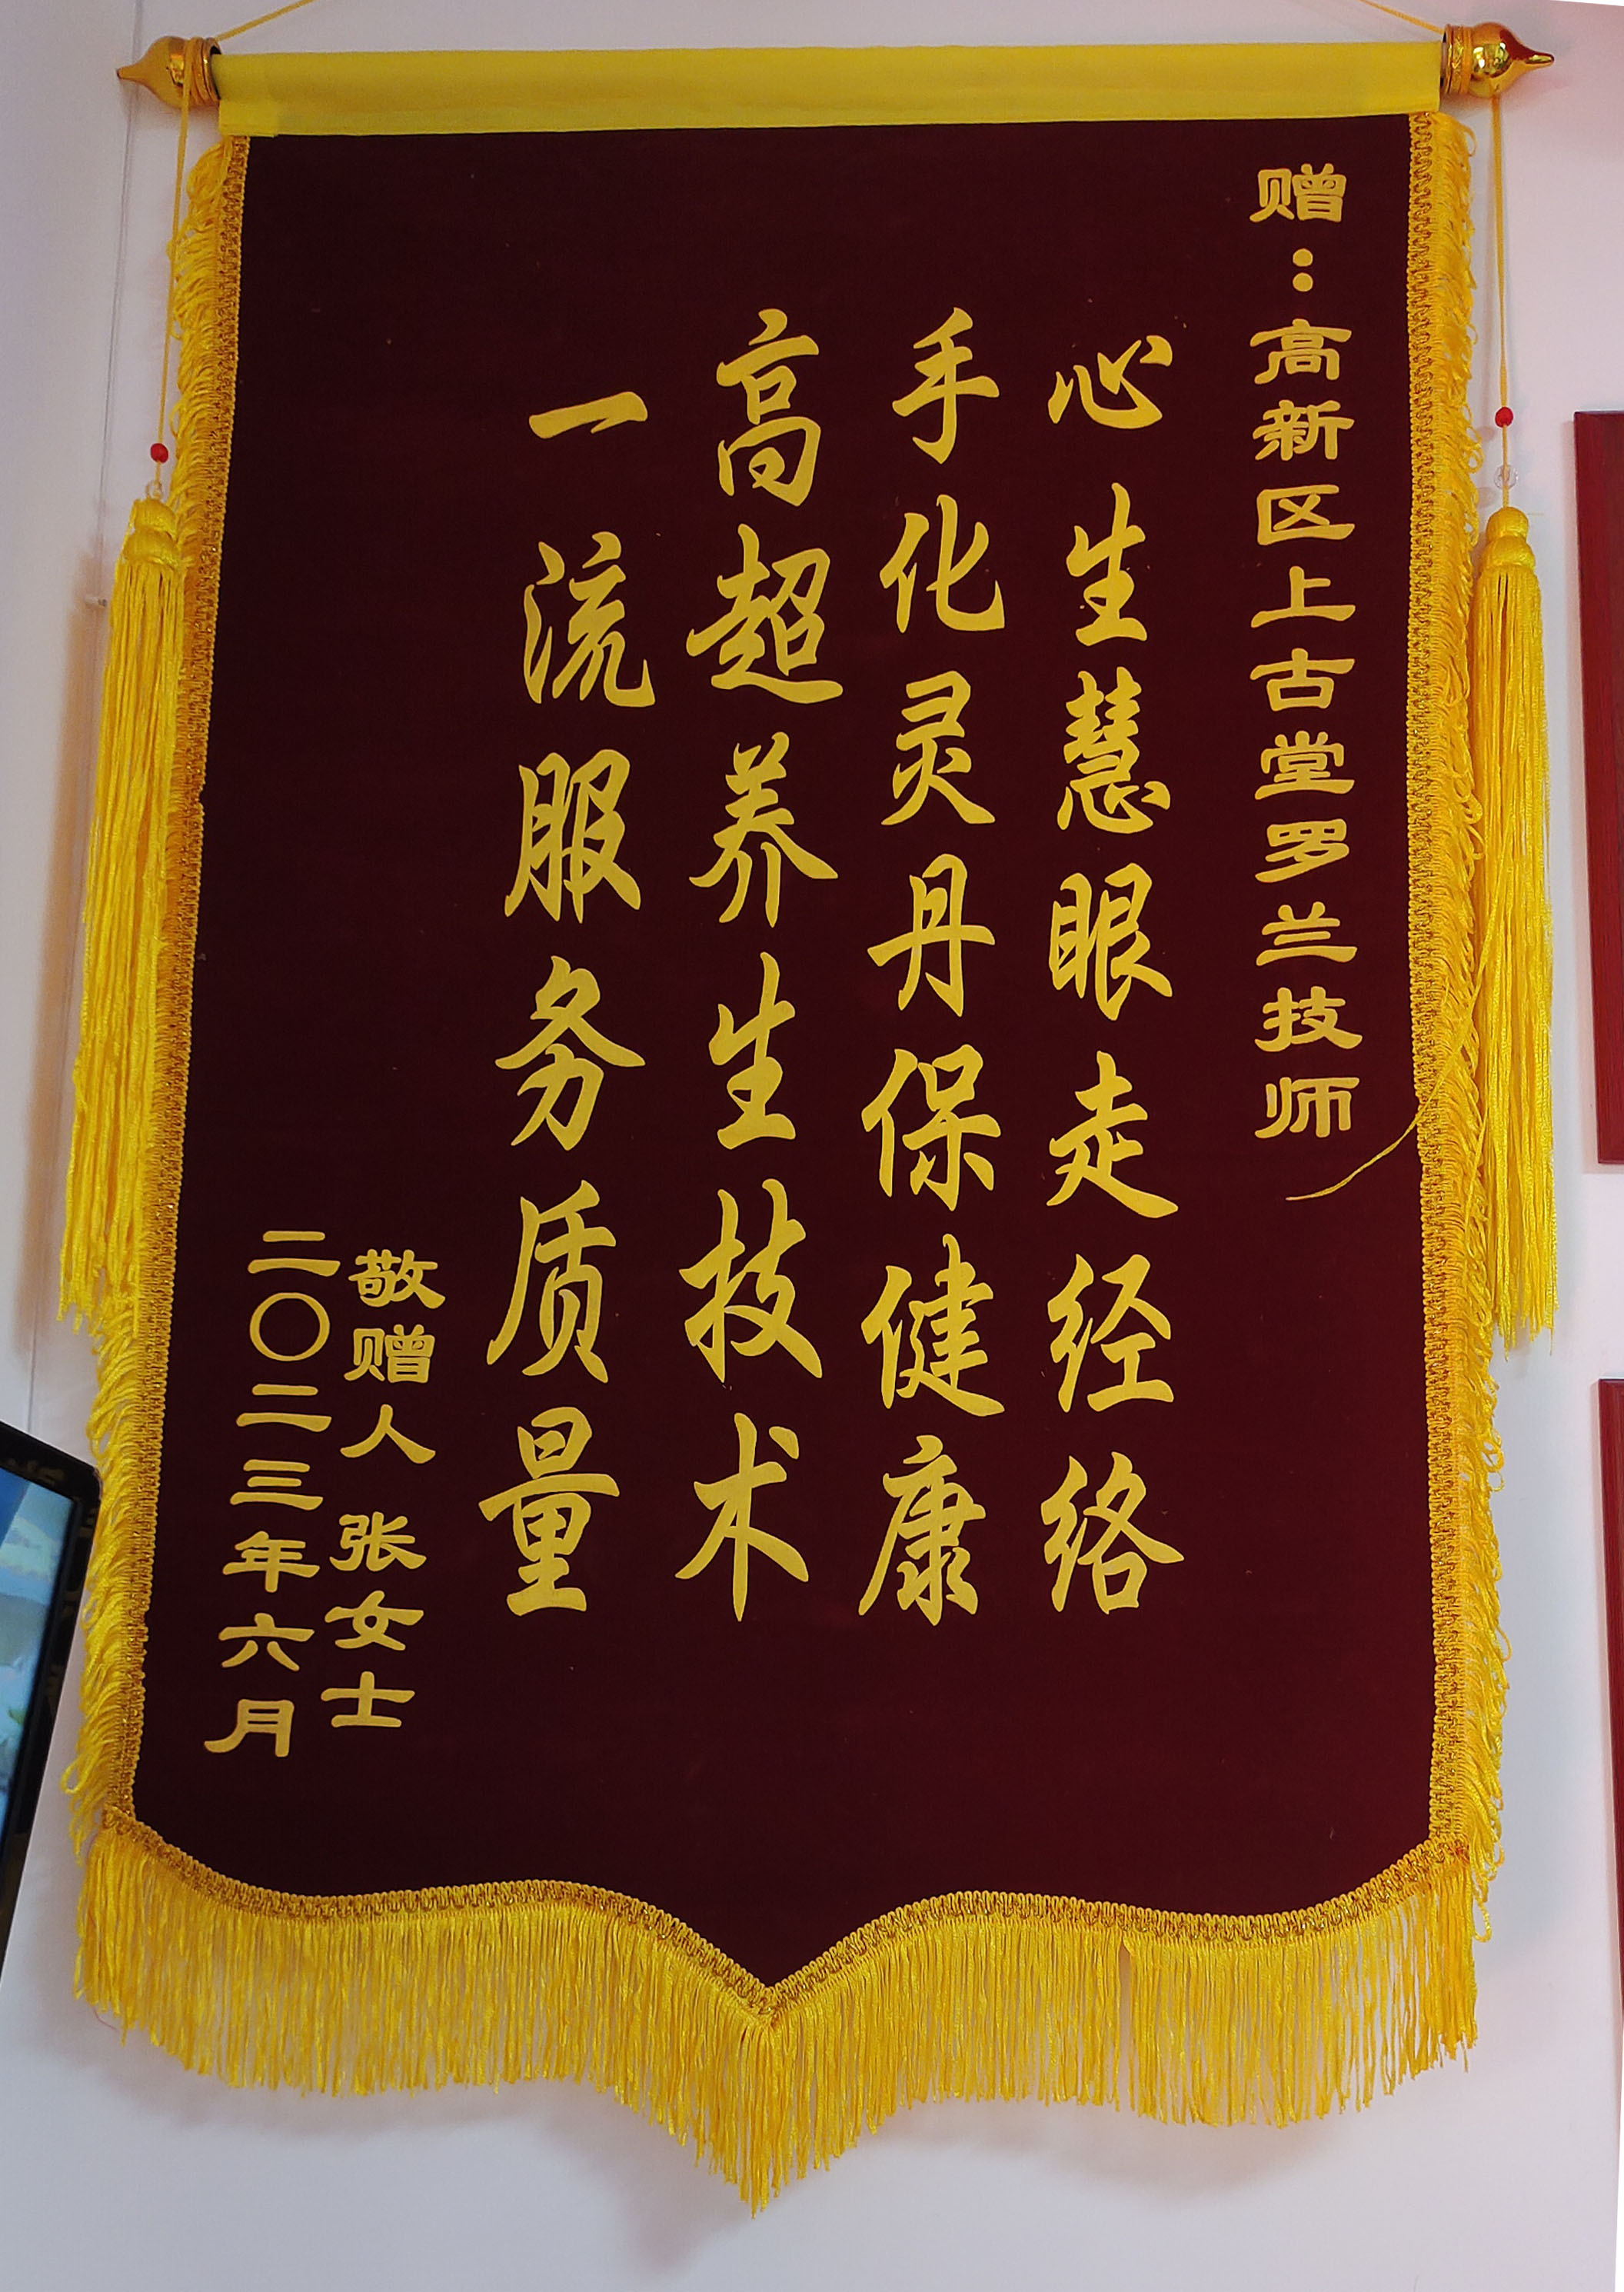 赠：高新区上古堂罗兰技师
心生慧眼走经络
手化灵丹保健康
高超养生技术
一流服务质量
敬赠人 张女士
二〇二三年六月